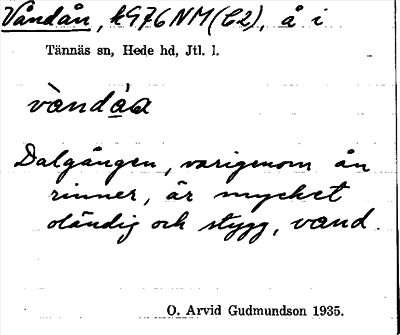 Våndån, k976NM(C2), å i
Tännäs sn, Hede hd, Jtl. l.
vàndá̲a
Dalgången, varigenom ån
rinner, är mycket
oländig och stygg, vand.
O. Arvid Gudmundson 1935.